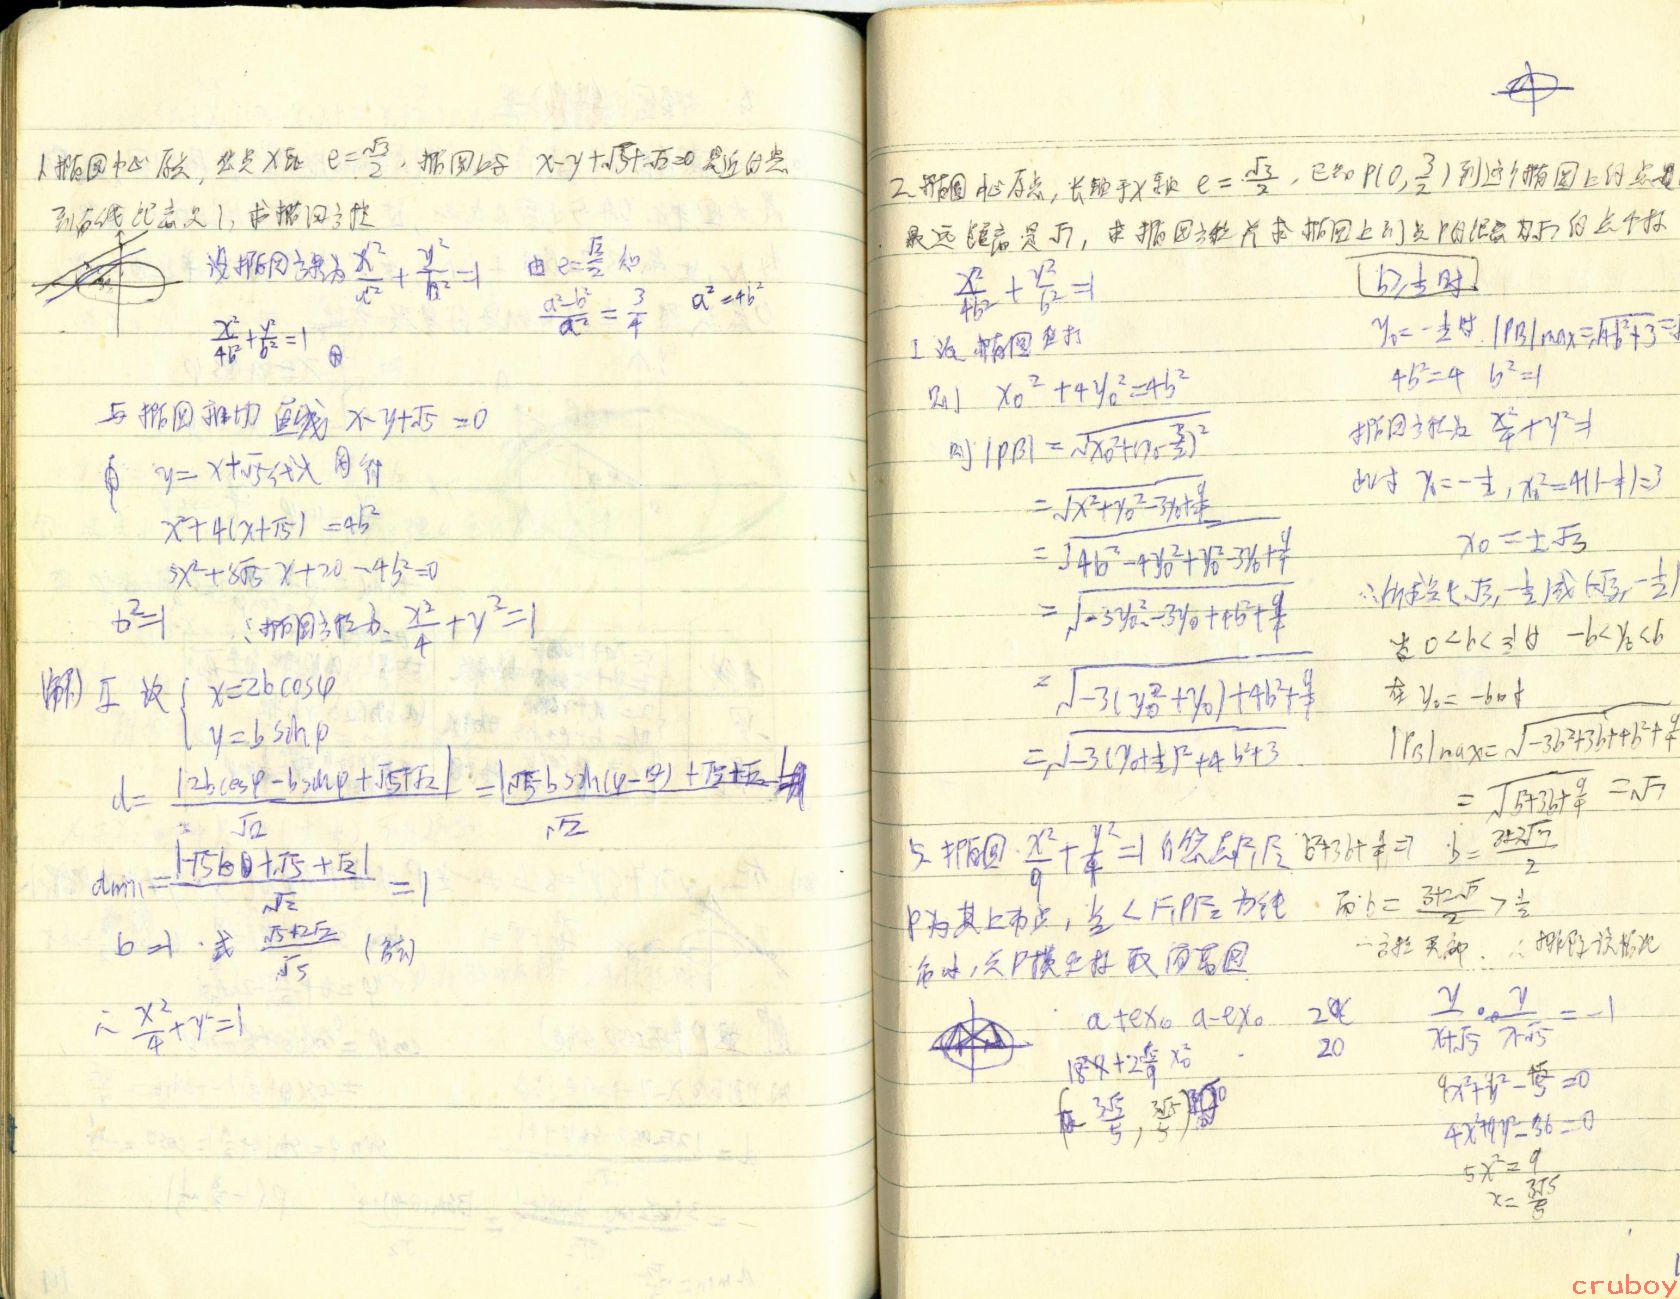 1.椭圆中心原点,焦点X轴 e=√3/2,椭圆上与 x-y+√5+√2=0 最近的点
到直线距离为1,求椭圆方程
设椭圆方程为 x²/a²+y²/b²=1 由e=√3/2知
(a²-b²)/a²=3/4 a²=4b²
x²/4b²+y²/b²=1
与椭圆相切直线 x-y+√5=0
y=x+√5代入
x²+4(x+√5)=4b²
5x²+8√5x+20-4b²=0
b²=1 ∴椭圆方程为 x²/4+y²=1
设{x=2bcosφ
y=bsinφ
d=|2bcosφ-bsinφ+√5+√2|/√2=|√5bsin(φ-θ)+√5+√2|/√2
dmin=|-√5b+√5+√2|/√2=1
b=1或(√5+2√2)/√5(舍)
∴x²/4+y²=1
2.椭圆中心原点,长轴于X轴 e=√3/2,已知P(0,3/2)到这个椭圆上的点
最远距离是√7,求椭圆方程并求椭圆上到点P的距离为√7的点坐标
x²/4b²+y²/b²=1
设椭圆
则 x₀²+4y₀²=4b²
则|PB|=√x₀²+(y₀-3/2)²
=√x²+y₀²-3y₀+9/4
=√4b²-4y₀²+y₀²-3y₀+9/4
=√-3y₀²-3y₀+4b²+9/4
=√-3(y₀²+y₀)+4b²+9/4
=√-3(y₀+1/2)²+4b²+3
b≥1/2时
y₀=-1/2时 |PB|max=√4b²+3=
4b²=4 b²=1
椭圆方程为 x²/4+y²=1
此时 y₀=-1/2, x₀²=4(1-1/4)=3
x₀=±√3
∴所求点(√3,-1/2)或(-√3,-1/2)
若0<b<1/2时 -b<y₀<b
在y₀=-b时
|PB|max=√-3b²+3b+4b²+9/4
=√b²+3b+9/4=√7
b²+3b+9/4=7 b=(-3+2√7)/2
而b=(-3+2√7)/2>1/2
方程无解 ∴排除该情况
5.椭圆x²/9+y²/4=1的焦点F₁F₂
P为其上动点,当<F₁PF₂为钝
角时,点P横坐标取值范围
a+ex₀ a-ex₀ 2a
20
(-3√5/5,3√5/5)
y/(x+√5)·y/(x-√5)=-1
x²+y²-5=0
4x²+9y²-36=0
5x²=9
x=3√5/5
cruboy